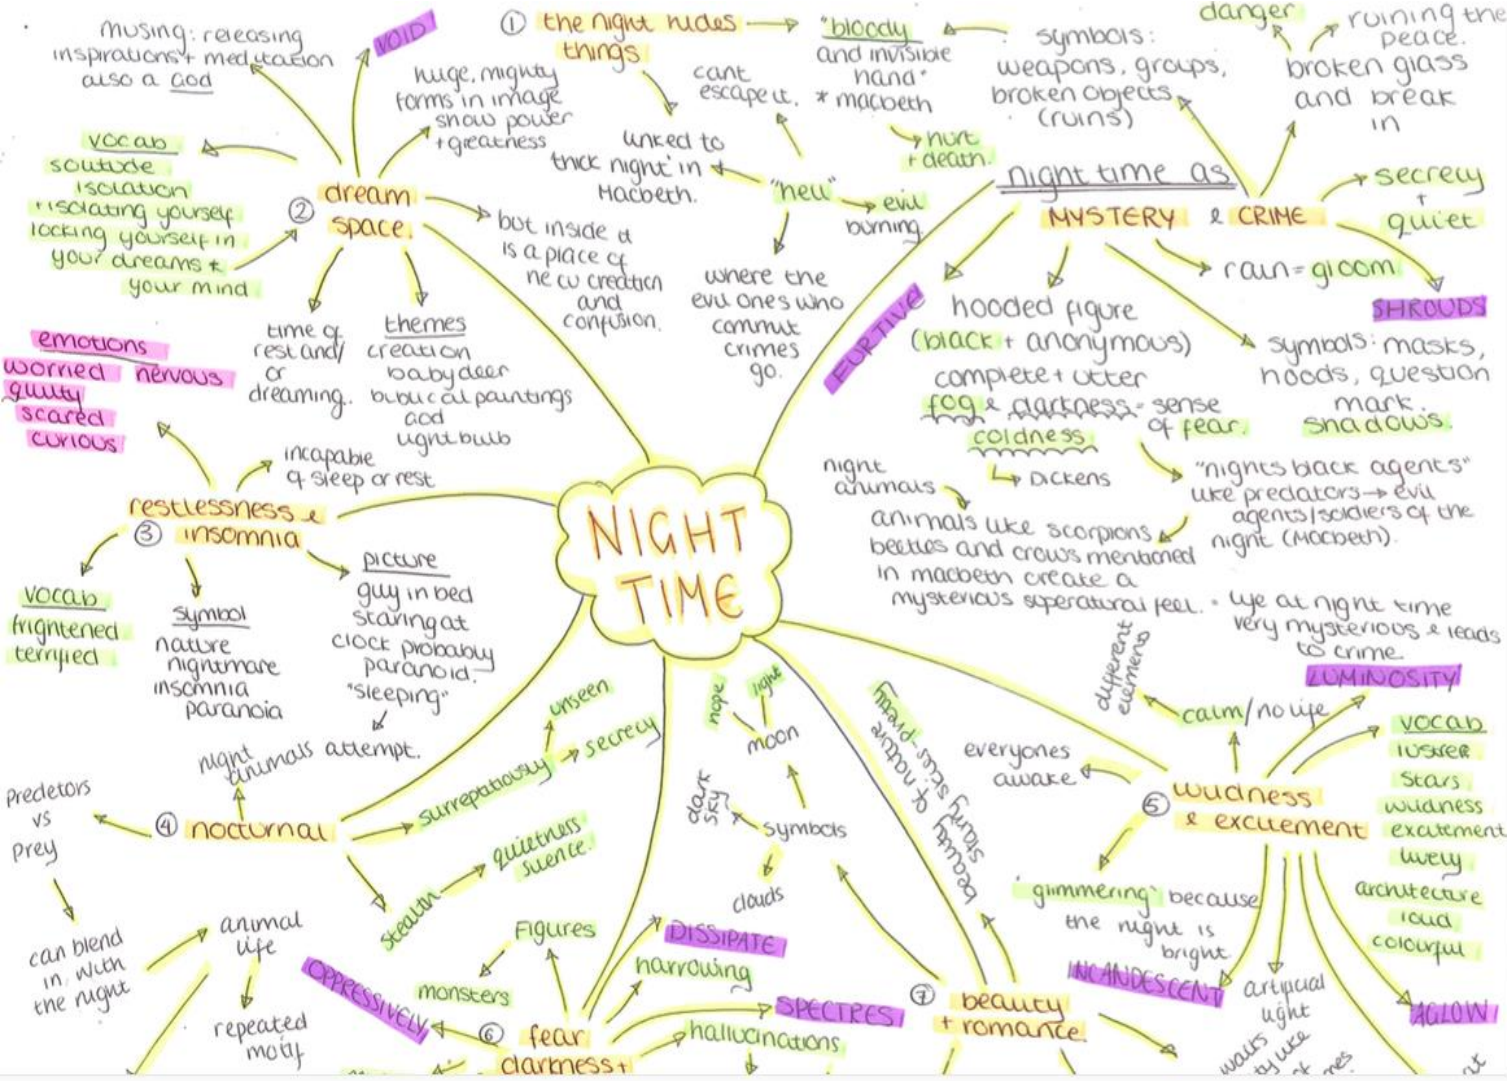 NIGHT
TIME
① the night hides
things
"bloody
and invisible
hand"
* macbeth
hurt
+ death.
linked to
'thick night' in
Macbeth.
cant
escape it.
"hell"
evil
burning.
where the
evil ones who
commit
crimes
go.
night time as
MYSTERY & CRIME
symbols:
weapons, groups,
broken objects
(ruins)
danger
ruining the
peace.
broken glass
and break
in
secrecy
+
quiet
SHROUDS
rain = gloom
symbols: masks,
hoods, question
mark.
shadows.
FURTIVE
hooded figure
(black + anonymous)
complete + utter
fog & darkness = sense
of fear.
coldness
Dickens
"nights black agents"
like predators → evil
agents/soldiers of the
night (Macbeth).
night
animals
animals like scorpions
beetles and crows mentioned
in macbeth create a
mysterious superatural feel.
life at night time
very mysterious & leads
to crime
② dream
space.
musing: releasing
inspirations + meditation
also a god
VOID
huge, mighty
forms in image
show power
+ greatness
vocab
solitude
isolation
+ isolating yourself
locking yourself in
your dreams +
your mind
but inside it
is a place of
new creation
and
confusion.
time of
rest and/
or
dreaming.
themes
creation
baby deer
biblical paintings
god
light bulb
③ restlessness &
insomnia
emotions
worried nervous
guilty
scared
curious
incapable
of sleep or rest
vocab
frightened
terrified
symbol
nature
nightmare
insomnia
paranoia
picture
guy in bed
staring at
clock probably
paranoid.
"sleeping"
attempt.
④ nocturnal
night
animals
Predetors
vs
Prey
can blend
in with
the night
animal
life
repeated
motif
surreptitiously
unseen
secrecy
stealth
quietness
silence.
⑤ wildness
& excitement
everyones
awake
calm/no life
different
elements
LUMINOSITY
vocab
lustrer
stars
wildness
excitement
lively
architecture
loud
colourful
'glimmering' because
the night is
bright
INCANDESCENT
artificial
light
AGLOW
⑥ fear
darkness +
Figures
monsters
OPPRESSIVELY
DISSIPATE
harrowing
SPECTRES
hallucinations
⑦ beauty
+ romance
beauty of nature
starry skies - pretty
symbols
moon
hope
light
dark
sky
clouds